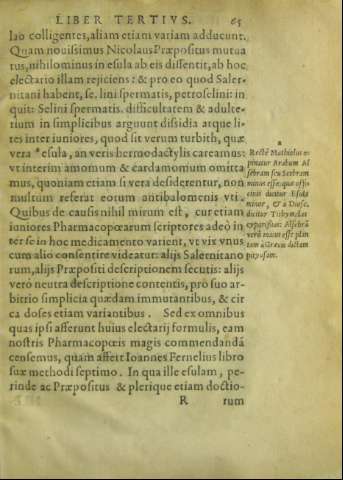 LIBER TERTIVS. 65
lao colligentes, aliam etiani variam adducunt.
Quam nouissimus Nicolaus Præpositus mutua
tus, nihilominus in esula ab eis dissentit, ab hoc
electario illam rejiciens: & pro eo quod Saler-
nitani habent, sc. lini spermatis, petroselini: in
quit: Selini spermatis. difficultatem & adulte-
rium in simplicibus arguunt dissidia atque li-
tes inter iuniores, quod sit verum turbith, quæ
vera *esula, an veris hermodactylis careamus:
vt interim amomum & cardamomum omitta
mus, quoniam etiam si vera desiderentur, non
multum referat eorum antibalomenis vti.
Quibus de causis nihil mirum est, cur etiam
iuniores Pharmacopœarum scriptores adeò in
ter se in hoc medicamento varient, vt vix vnus
cum alio consentire videatur: alijs Salernitano
rum, alijs Præpositi descriptionem secutis: alijs
verò neutra descriptione contentis, pro suo ar-
bitrio simplicia quædam immutantibus, & cir
ca doses etiam variantibus. Sed ex omnibus
quas ipsi afferunt huius electarij formulis, eam
nostris Pharmacopœis magis commendandā
censemus, quam affert Ioannes Fernelius libro
suæ methodi septimo. In qua ille esulam, pe-
rinde ac Præpositus & plerique etiam doctio-
R rum
a
Rectè Mathiolus o-
pinatur Arabum Al
sebram seu Scebram
minus esse, quæ offi-
cinis dicitur Esula
minor, & à Diosc.
dicitur
esse plin
dictam
pityusam.